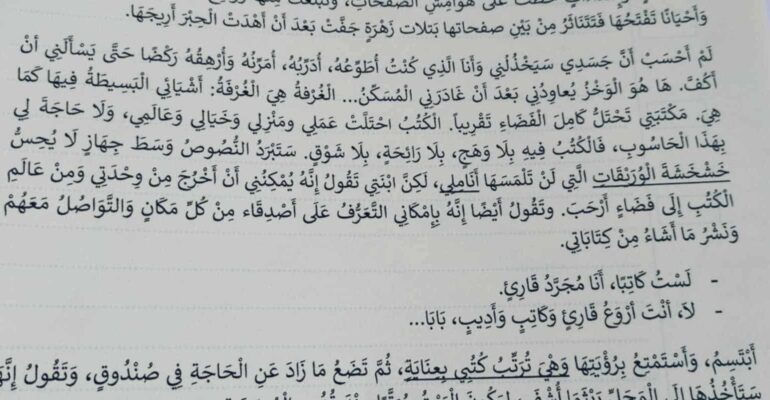 عَلَى هَوَامِشِ الصَّفَحَاتِ،
وَأَحْيَانًا تَفْتَحُهَا فَتَتَنَاثَرُ مِنْ بَيْنِ صفحاتها بَتَلات زَهْرَةٍ جَفَّتْ بَعْدَ أَنْ أَهْدَتْ الْحِبْرَ أَرِيجَهَا.
لَمْ أَحْسَبْ أَنَّ جَسَدِي سَيَخْذُلُنِي وَأَنَا الَّذِي كُنْتُ أُطَوِّعُهُ، أُدَرِّبُهُ، أُمَرِّنُهُ وَأُرْهِقُهُ رَكْضًا حَتَّى يَسْأَلَنِي أنْ
أَكُفَّ. هَا هُوَ الْوَخْزُ يُعاوِدُنِي بَعْدَ أَنْ غَادَرَنِي الْمُسَكِّنُ... الْغُرْفَةُ هِيَ الْغُرْفَةُ: أَشْيَائِي الْبَسِيطَةُ فِيهَا كَمَا
هِيَ. مَكْتَبَتِي تَحْتَلُّ كامِلَ الْفَضَاءِ تَقْرِيباً. الْكُتُبُ احْتَلَّتْ عَمَلِي ومَنْزِلِي وَخَيَالِي وَعَالَمِي، وَلَا حَاجَةَ لِي
بِهَذَا الْحَاسُوبِ، فَالْكُتُبُ فِيهِ بِلَا وَهَجٍ، بِلَا رَائِحَةٍ، بِلَا شَوْقٍ. سَتَبْرَدُ النُّصُوصُ وَسَطَ جِهَازٍ لَا يُحِسُّ
خَشْخَشَةَ الْوُرَيْقَاتِ الَّتِي لَنْ تَلْمَسَهَا أَنَامِلِي، لَكِنَّ ابْنَتِي تَقُولُ إِنَّهُ يُمْكِنُنِي أَنْ أَخْرُجَ مِنْ وِحْدَتِي وَمِنْ عَالَمِ
الْكُتُبِ إِلَى فَضَاءٍ أَرْحَبَ. وتَقُولُ أَيْضًا إِنَّهُ بِإِمْكَانِي التَّعَرُّفُ عَلَى أَصْدِقَاء مِنْ كُلِّ مَكَانٍ وَالتَّوَاصُلُ مَعَهُمْ
وَنَشْرُ مَا أَشَاءُ مِنْ كِتَابَاتِي.
- لَسْتُ كَاتِبًا، أَنَا مُجَرَّدُ قَارِئٍ.
- لَا، أَنْتَ أَرْوَعُ قَارِئٍ وَكَاتِبٍ وَأَدِيبٍ، بَابَا...
أَبْتَسِمُ، وَأَسْتَمْتِعُ بِرُؤْيَتِهَا وَهْيَ تُرَتِّبُ كُتُبِي بِعِنَايَةٍ، ثُمَّ تَضَعُ مَا زَادَ عَنِ الْحَاجَةِ فِي صُنْدُوقٍ، وَتَقُولُ إِنَّهَا
سَتَأْخُذُهَا إِلَى